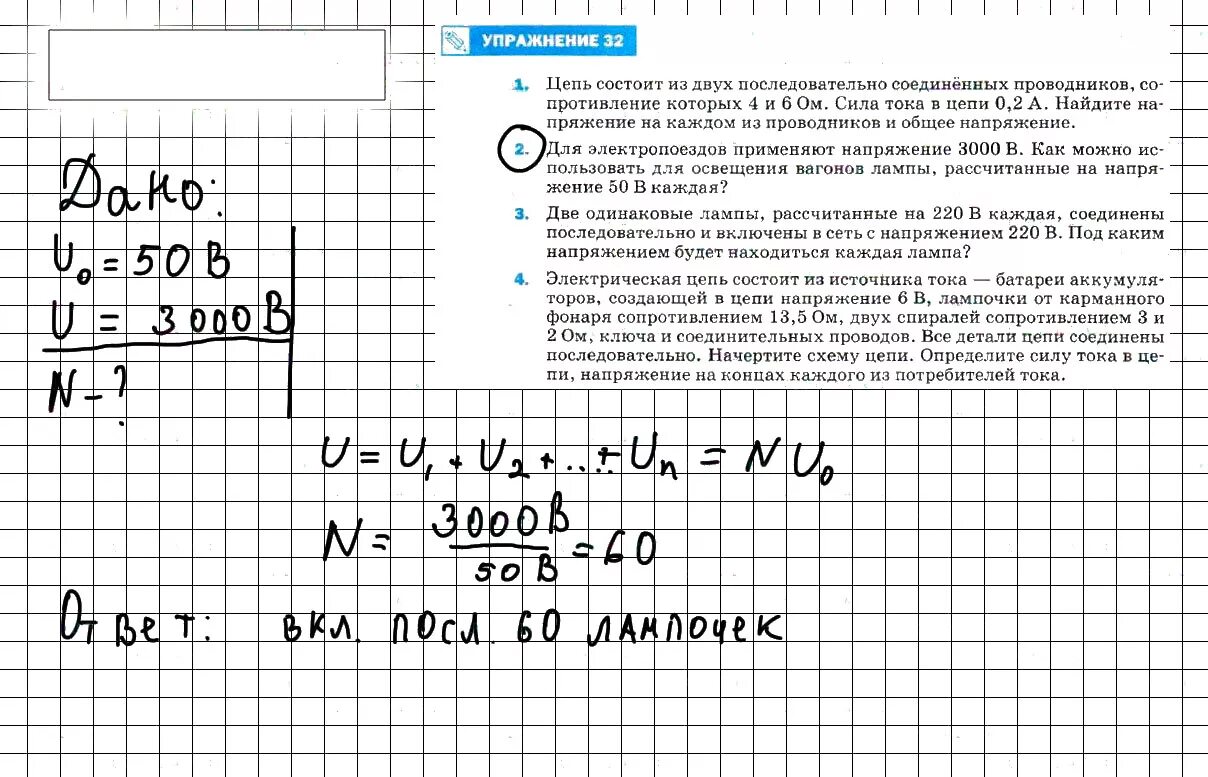 УПРАЖНЕНИЕ 32
1. Цепь состоит из двух последовательно соединённых проводников, со-
противление которых 4 и 6 Ом. Сила тока в цепи 0,2 А. Найдите на-
пряжение на каждом из проводников и общее напряжение.
2. Для электропоездов применяют напряжение 3000 В. Как можно ис-
пользовать для освещения вагонов лампы, рассчитанные на напря-
жение 50 В каждая?
3. Две одинаковые лампы, рассчитанные на 220 В каждая, соединены
последовательно и включены в сеть с напряжением 220 В. Под каким
напряжением будет находиться каждая лампа?
4. Электрическая цепь состоит из источника тока — батареи аккумуля-
торов, создающей в цепи напряжение 6 В, лампочки от карманного
фонаря сопротивлением 13,5 Ом, двух спиралей сопротивлением 3 и
2 Ом, ключа и соединительных проводов. Все детали цепи соединены
последовательно. Начертите схему цепи. Определите силу тока в це-
пи, напряжение на концах каждого из потребителей тока.
Дано:
U₀ = 50 В
U = 3000 В
N - ?
U = U₁ + U₂ + ... + Uₙ = N U₀
N = 3000 В / 50 В = 60
Ответ: вкл. посл. 60 лампочек